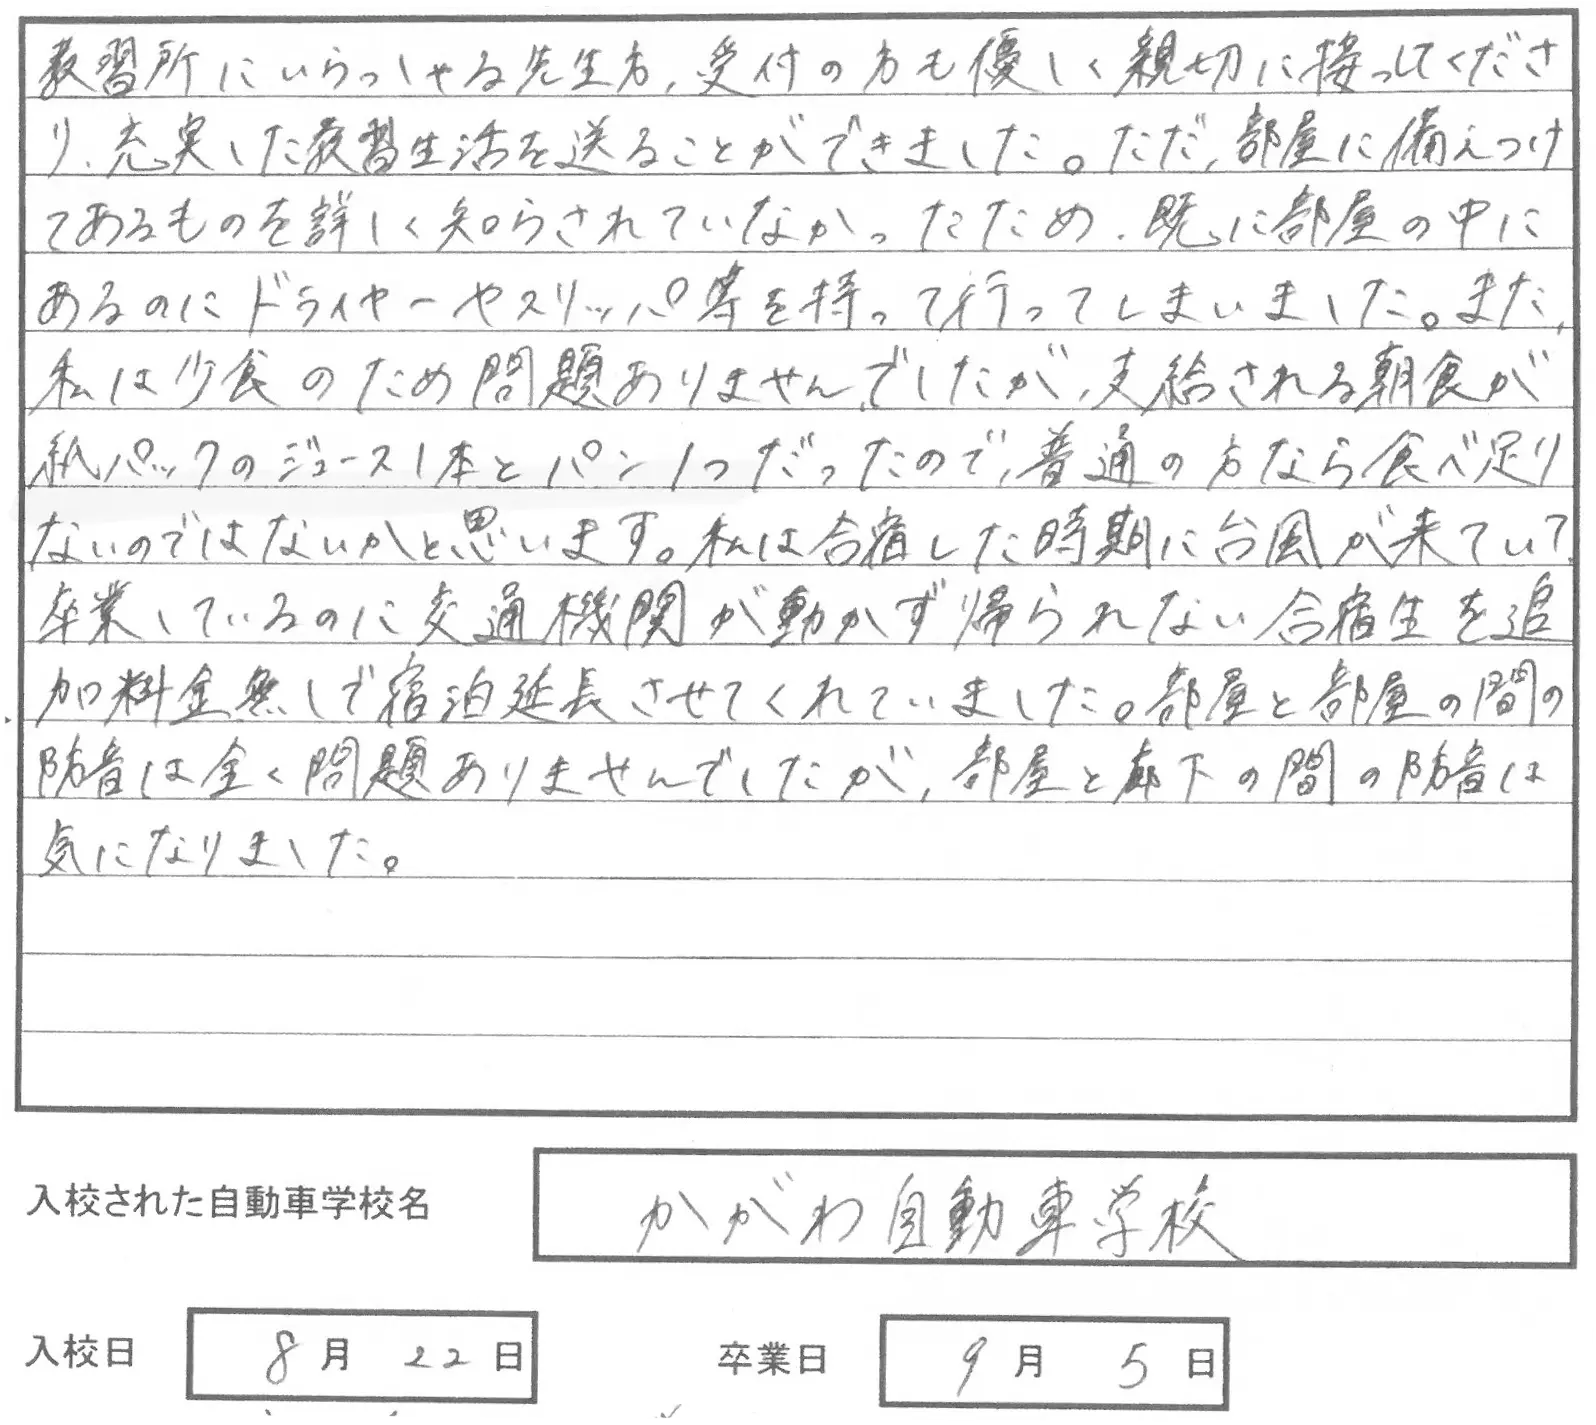 教習所にいらっしゃる先生方、受付の方も優しく親切に接ってくださ
り、充実した教習生活を送ることができました。ただ、部屋に備えつけ
てあるものを詳しく知らされていなかったため、既に部屋の中に
あるのにドライヤーやスリッパ等を持って行ってしまいました。また、
私は少食のため問題ありませんでしたが、支給される朝食が
紙パックのジュース1本とパン1つだったので、普通の方なら食べ足り
ないのではないかと思います。私は合宿した時期に台風が来ていて、
卒業しているのに交通機関が動かず帰られない合宿生を追
加料金無しで宿泊延長させてくれていました。部屋と部屋の間の
防音は全く問題ありませんでしたが、部屋と廊下の間の防音は
気になりました。
入校された自動車学校名 かがわ自動車学校
入校日 8月22日 卒業日 9月5日